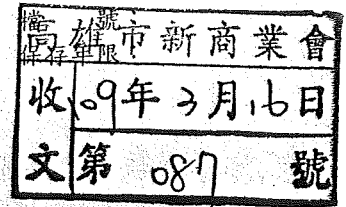 檔號
保存年限
高雄市新商業會
收文
109年3月16日
第087號